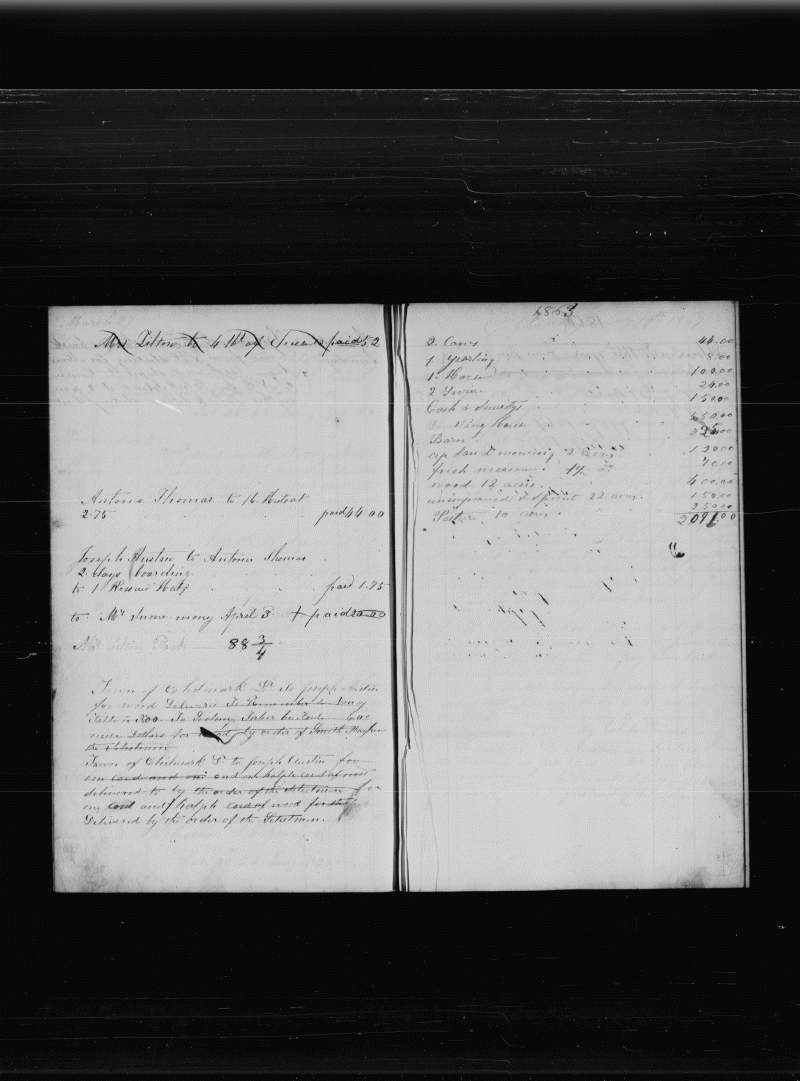 Mrs Tilton to 4 lbs of paid 52
Antone Thomas to 16
2.75 paid 44.00
Joseph Austin to Antone Thomas
2 days boarding
to 1 Hat paid 1.75
to Mr Snow mony April 3 + paid 20.00
88 3/4
Town of Chilmark Dr To Joseph Austin
for wood Delivered To
Tilton 3.00 To Taber
seven Dollars for wood by order of Smith Mayhew
the Selectmen
Town of Chilmark Dr to Joseph Austin for
one cord and one and one halph cord of wood
delivered to by the order of the Selectmen for
one cord and halph cord of wood for the
Delivered by the order of the Selectmen.
1863
2 Cows 44.00
1 Yearling 8.00
1 Horse 100.00
2 Swine 24.00
Cash & Securitys 150.00
Dwelling House 650.00
Barn
up Land mowing 2 acres 120.00
fresh meadow 1 1/2 do 70.00
wood 12 acres 400.00
unimproved & sprout 22 acres 150.00
Pasture 10 acres 250.00
2,091.00